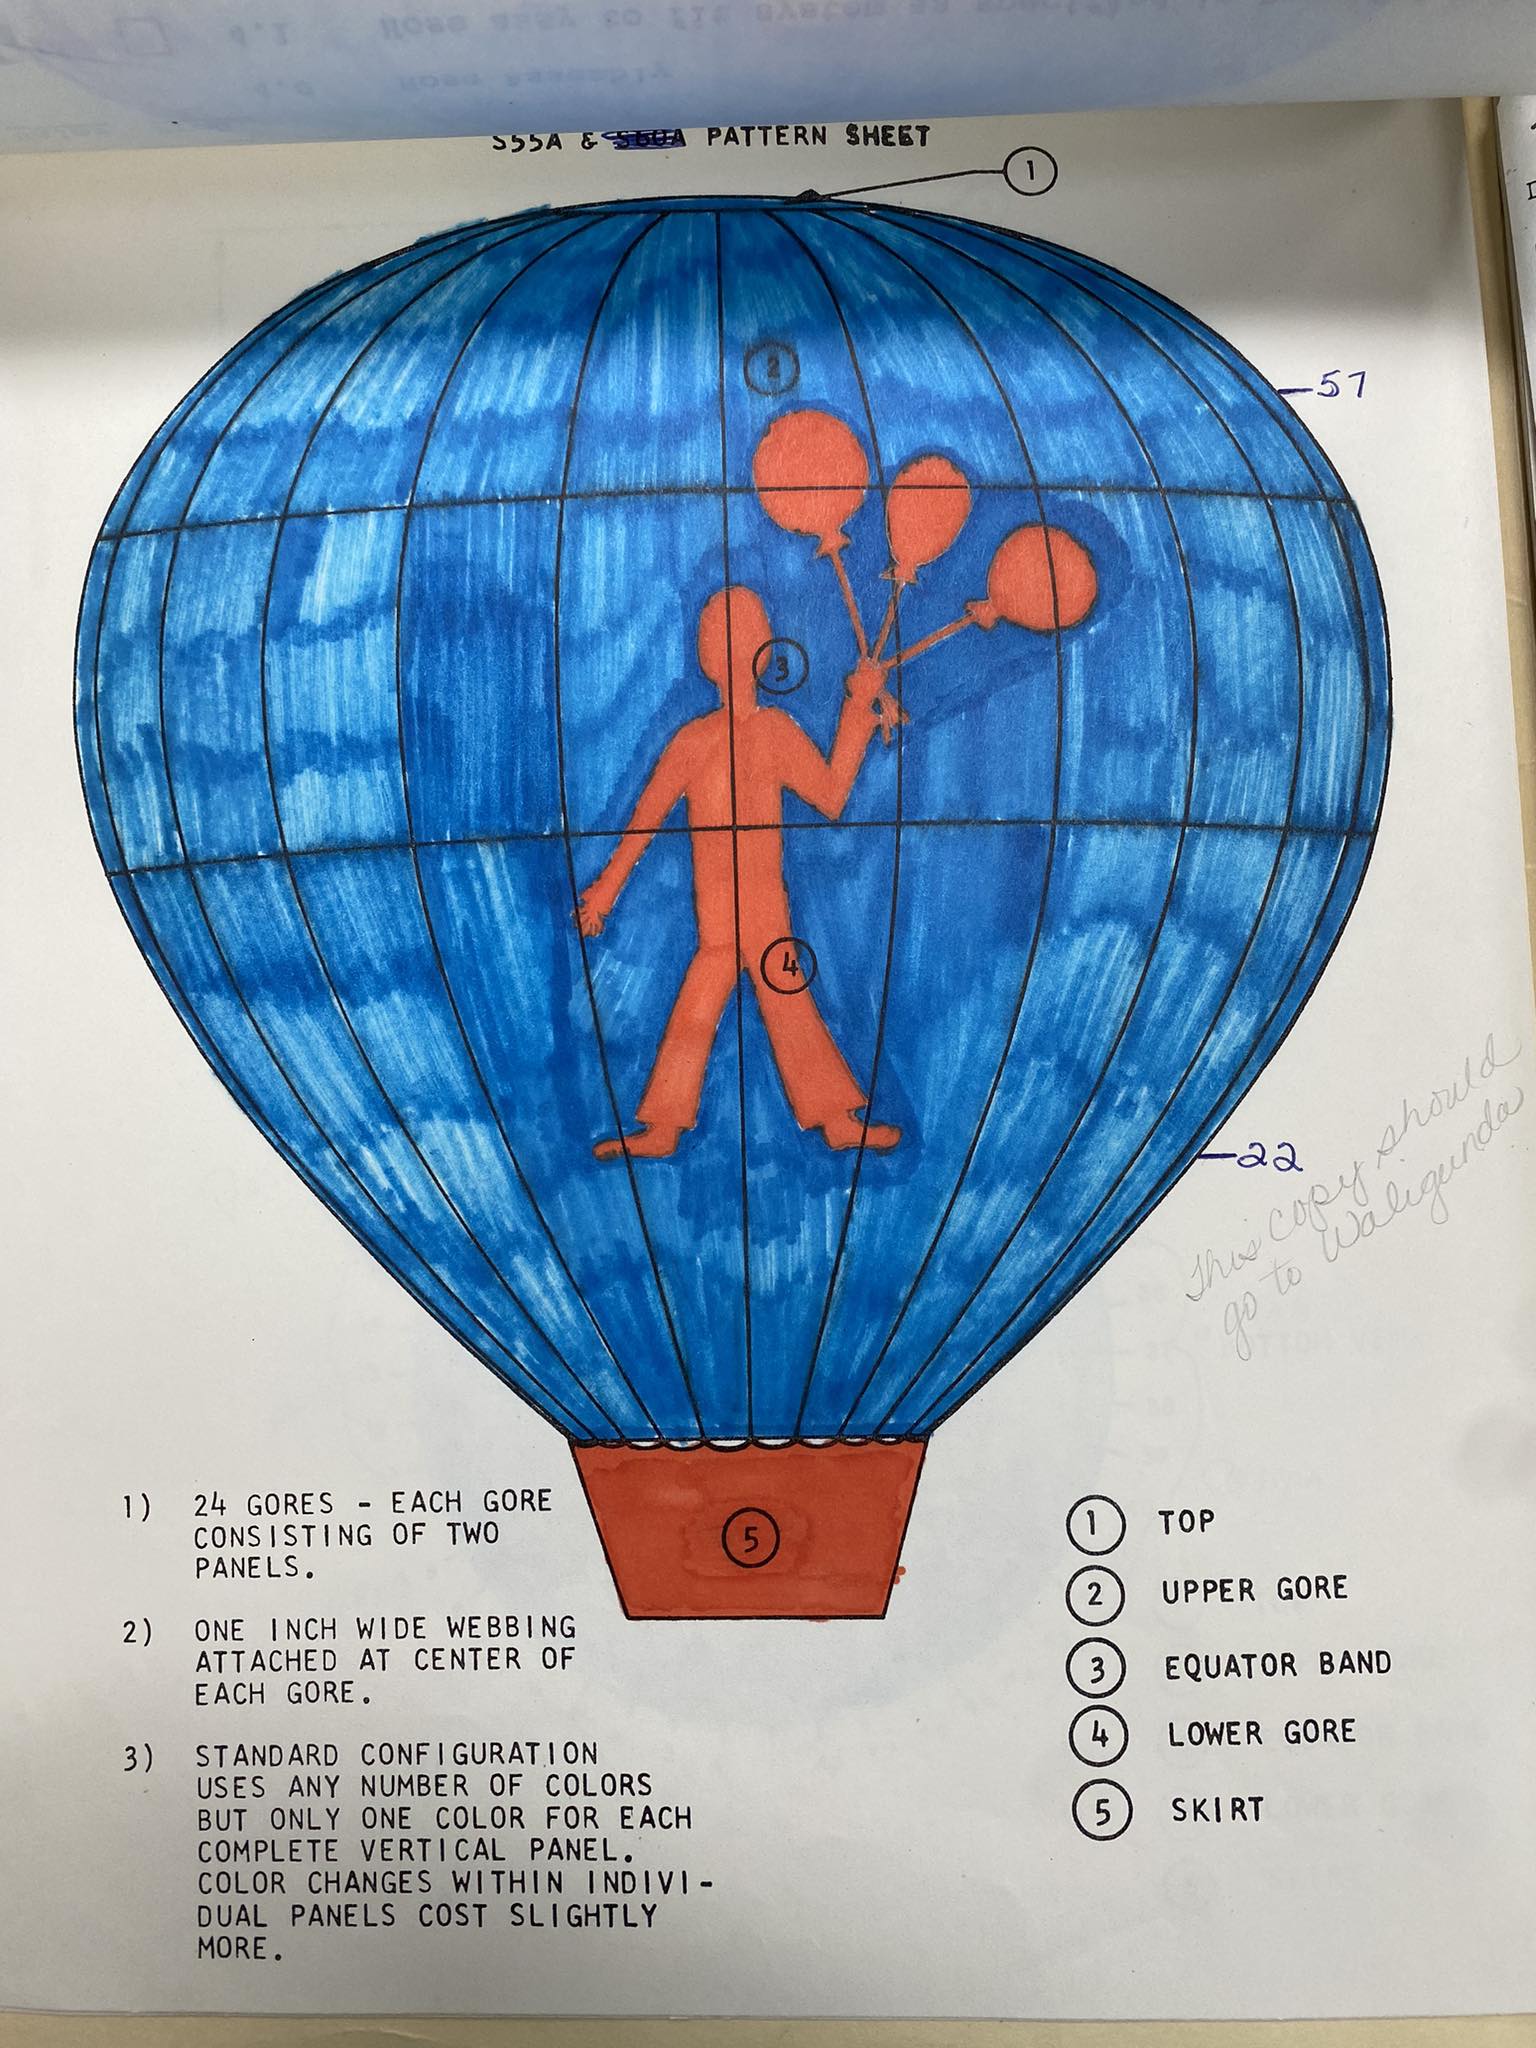 S55A & S60A PATTERN SHEET
1
2
57
3
4
22
This copy should
go to Waligunda
5
1) 24 GORES - EACH GORE
CONSISTING OF TWO
PANELS.
2) ONE INCH WIDE WEBBING
ATTACHED AT CENTER OF
EACH GORE.
3) STANDARD CONFIGURATION
USES ANY NUMBER OF COLORS
BUT ONLY ONE COLOR FOR EACH
COMPLETE VERTICAL PANEL.
COLOR CHANGES WITHIN INDIVI-
DUAL PANELS COST SLIGHTLY
MORE.
1 TOP
2 UPPER GORE
3 EQUATOR BAND
4 LOWER GORE
5 SKIRT